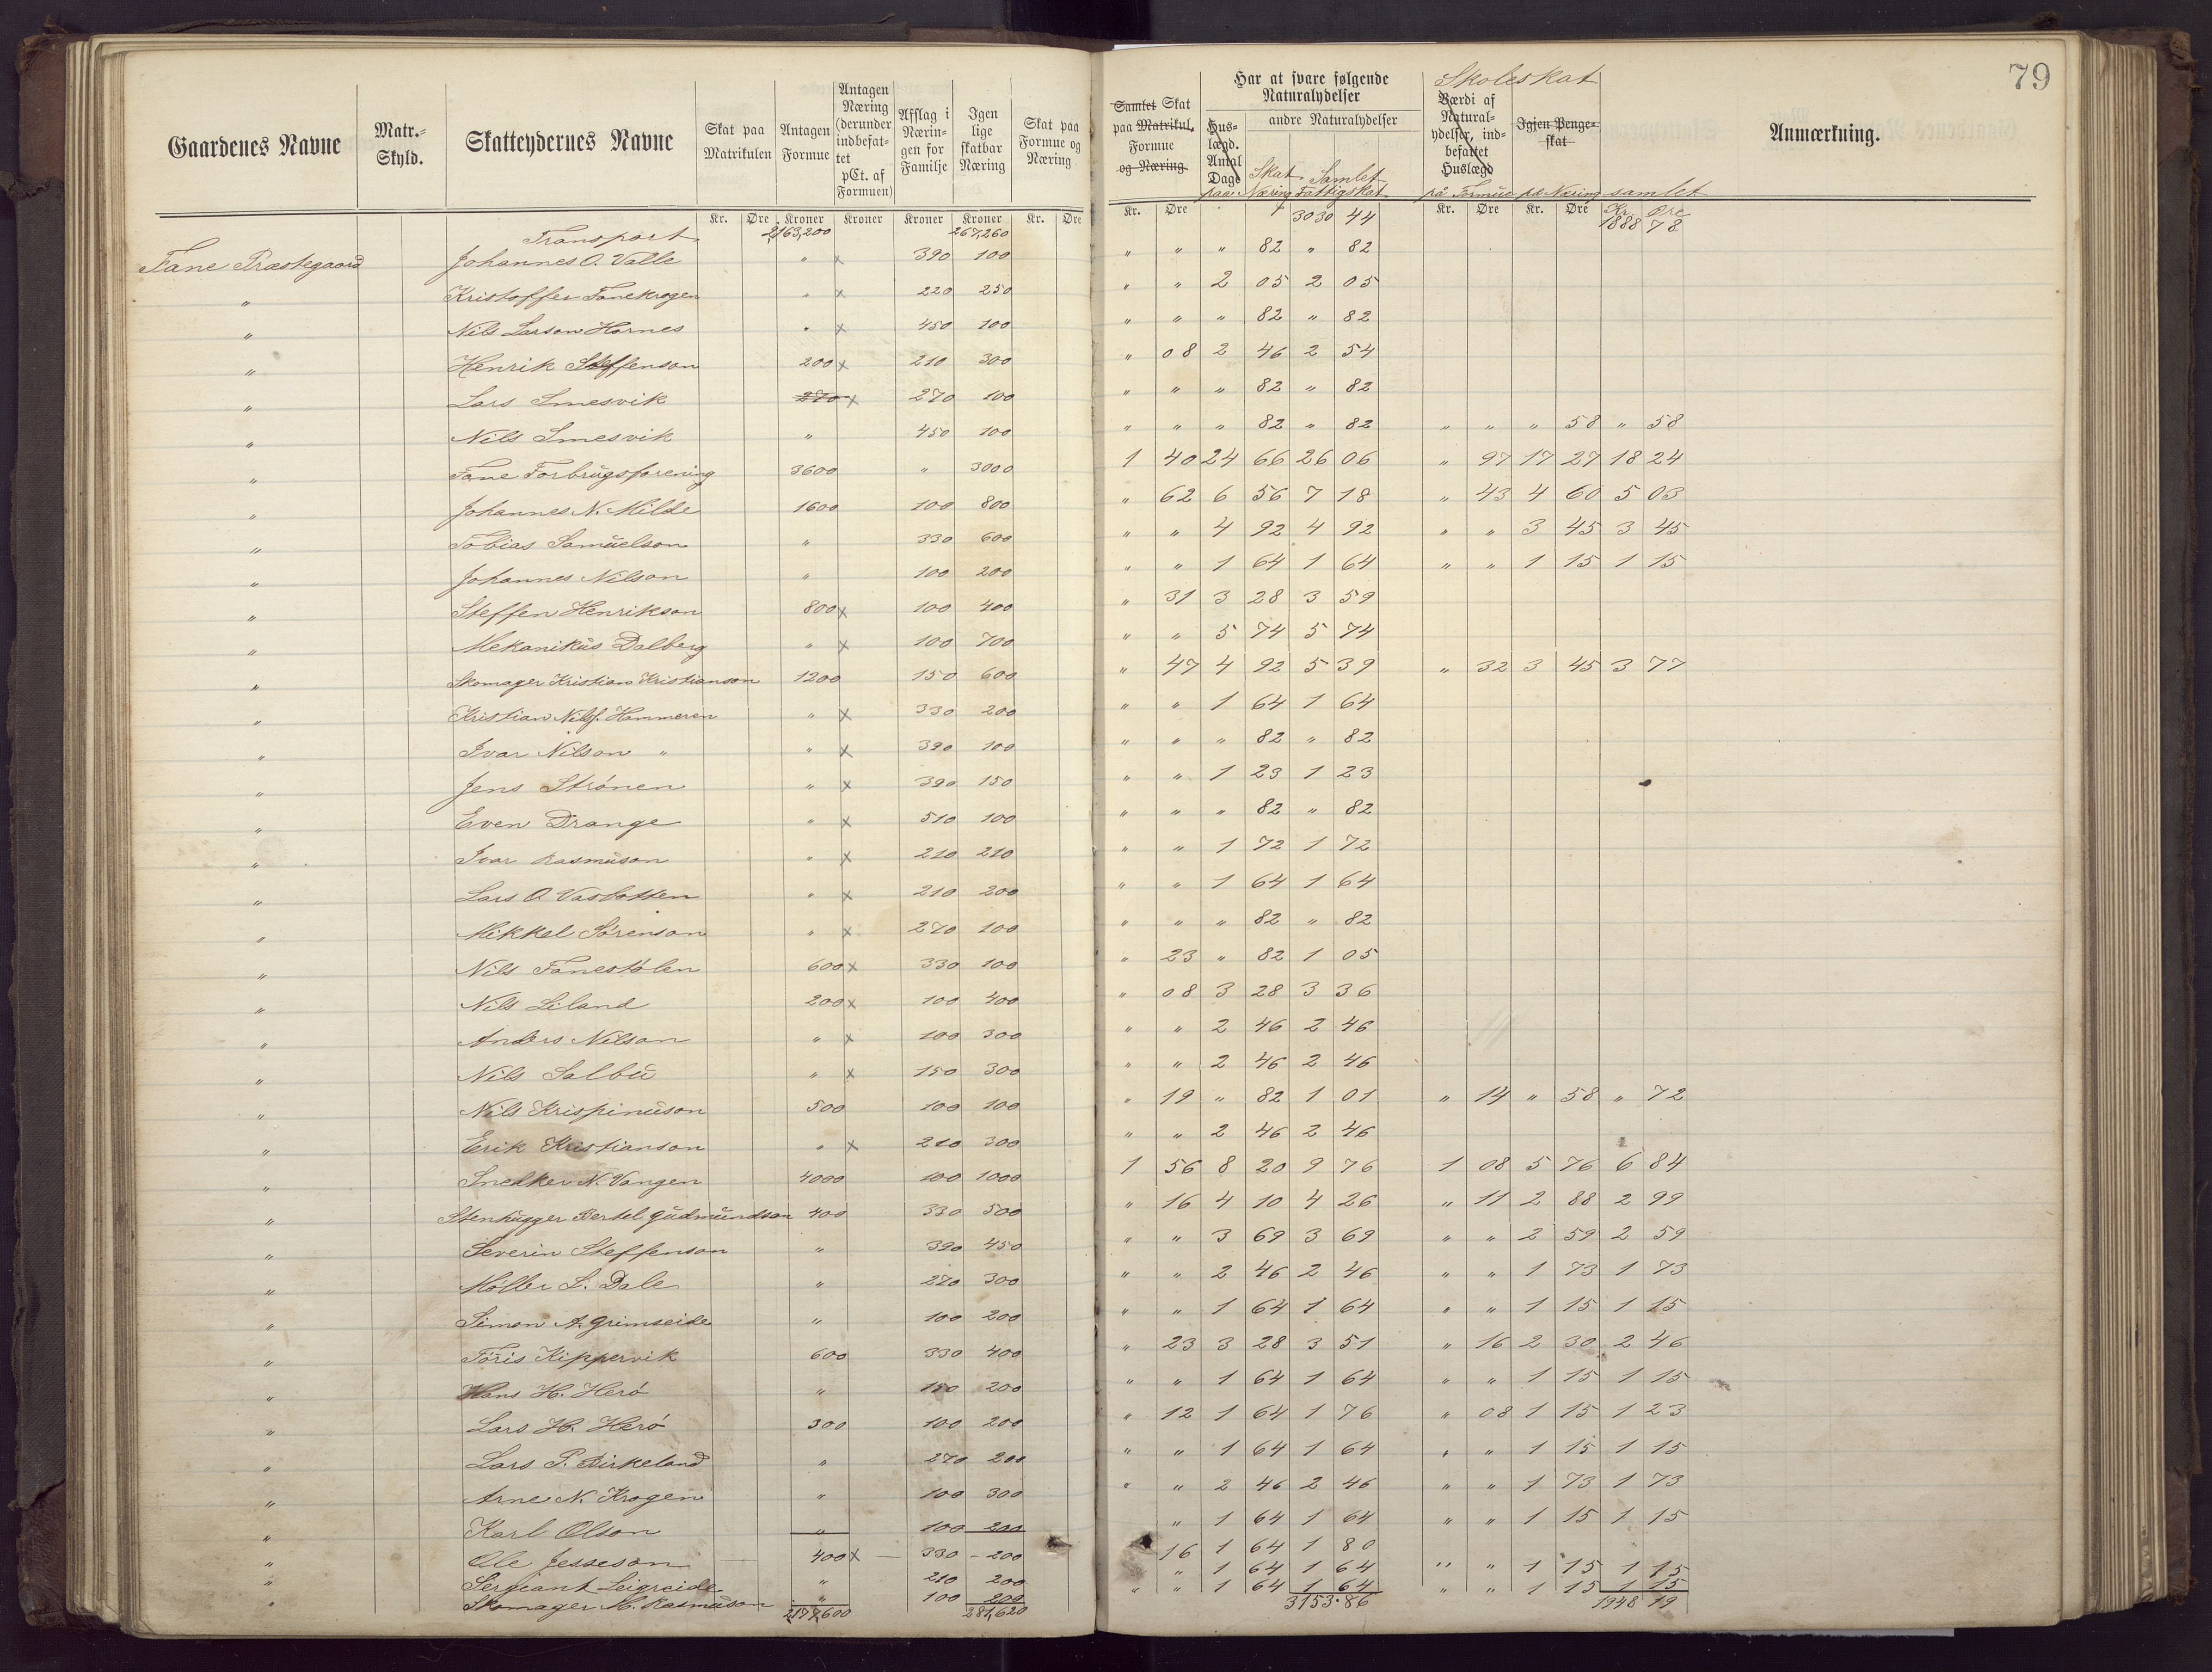 79
Gaardenes Navne | Matr.-Skyld. | Skatteydernes Navne | Skat paa Matrikulen | Antagen Formue | Antagen Næring (derunder indbefattet pCt. af Formuen) | Afslag i Næringen for Familje | Igen lige skatbar Næring | Skat paa Formue og Næring | Samlet Skat paa Matrikul, Formue og Næring | Har at svare følgende Naturalydelser | Huslægd. Antal Dage | andre Naturalydelser | Skat paa Næring | Samlet Fattigskat | Skoleskat | Værdi af Naturalydelser, indbefattet Huslægd | Igjen Pengeskat | på Formue | på Næring | samlet | Anmærkning.
Kr. Øre Kroner Kroner Kroner Kroner Kr. Øre Kr. Øre Kr. Øre Kr. Øre Kr. Øre
Transport 2,163,200 267,260 3030 44 1888 78
Fane Præstegaard Johannes O. Valle " x 390 100 " " " 82 " 82
" Kristoffer Fanekrogen " x 220 250 " " 2 05 2 05
" Nils Larson Hornes " x 450 100 " " " 82 " 82
" Henrik Steffenson 200 x 210 300 " 08 2 46 2 54
" Lars Smesvik 270 x 270 100 " " " 82 " 82
" Nils Smesvik " 450 100 " " " 82 " 82 " " " 58 " 58
" Fane Forbrugsforening 3600 " 3000 1 40 24 66 26 06 " 97 17 27 18 24
" Johannes N. Milde 1600 100 800 " 62 6 56 7 18 " 43 4 60 5 03
" Tobias Samuelson " 330 600 " " 4 92 4 92 " " 3 45 3 45
" Johannes Nilson " 100 200 " " 1 64 1 64 " " 1 15 1 15
" Steffen Henrikson 800 x 100 400 " 31 3 28 3 59
" Mekanikus Dalberg " x 100 700 " " 5 74 5 74
" Skomager Kristian Kristianson 1200 150 600 " 47 4 92 5 39 " 32 3 45 3 77
" Kristian Nilss. Hammeren " x 330 200 " " 1 64 1 64
" Ivar Nilson " " x 390 100 " " " 82 " 82
" Jens Strønen " x 390 150 " " 1 23 1 23
" Even Drange " x 510 100 " " " 82 " 82
" Ivar Rasmuson " x 210 210 " " 1 72 1 72
" Lars O. Vasbotten " x 210 200 " " 1 64 1 64
" Mikkel Sørenson " x 270 100 " " " 82 " 82
" Nils Fanestølen 600 x 330 100 " 23 " 82 1 05
" Nils Liland 200 x 100 400 " 08 3 28 3 36
" Anders Nilson " x 100 300 " " 2 46 2 46
" Nils Salbu " x 150 300 " " 2 46 2 46
" Nils Krispinuson 500 100 100 " 19 " 82 1 01 " 14 " 58 " 72
" Erik Kristianson " x 210 300 " " 2 46 2 46
" Snedker N. Vangen 4000 100 1000 1 56 8 20 9 76 1 08 5 76 6 84
" Stenhugger Bertel Gudmundson 400 330 500 " 16 4 10 4 26 " 11 2 88 2 99
" Severin Steffenson " 390 450 " " 3 69 3 69 " " 2 59 2 59
" Møller L. Dale " 270 300 " " 2 46 2 46 " " 1 73 1 73
" Simon A. Grimseide " 100 200 " " 1 64 1 64 " " 1 15 1 15
" Toris Kippervik 600 330 400 " 23 3 28 3 51 " 16 2 30 2 46
" Hans H. Herø " 150 200 " " 1 64 1 64 " " 1 15 1 15
" Lars H. Herø 300 100 200 " 12 1 64 1 76 " 08 1 15 1 23
" Lars P. Birkeland " 270 200 " " 1 64 1 64 " " 1 15 1 15
" Arne N. Krogen " 100 300 " " 2 46 2 46 " " 1 73 1 73
" Karl Olson " 100 200 " 1 64 1 64 " " 1 15 1 15
" Ole Jesseson 400 x 330 200 16 1 64 1 80
" Sergeant Leigreide " 210 200 " 1 64 1 64 " " 1 15 1 15
" Skomager M. Rasmuson " 100 200 " " 1 64 1 64 " " 1 15 1 15
2,177,600 281,620 3153.86 1948 19